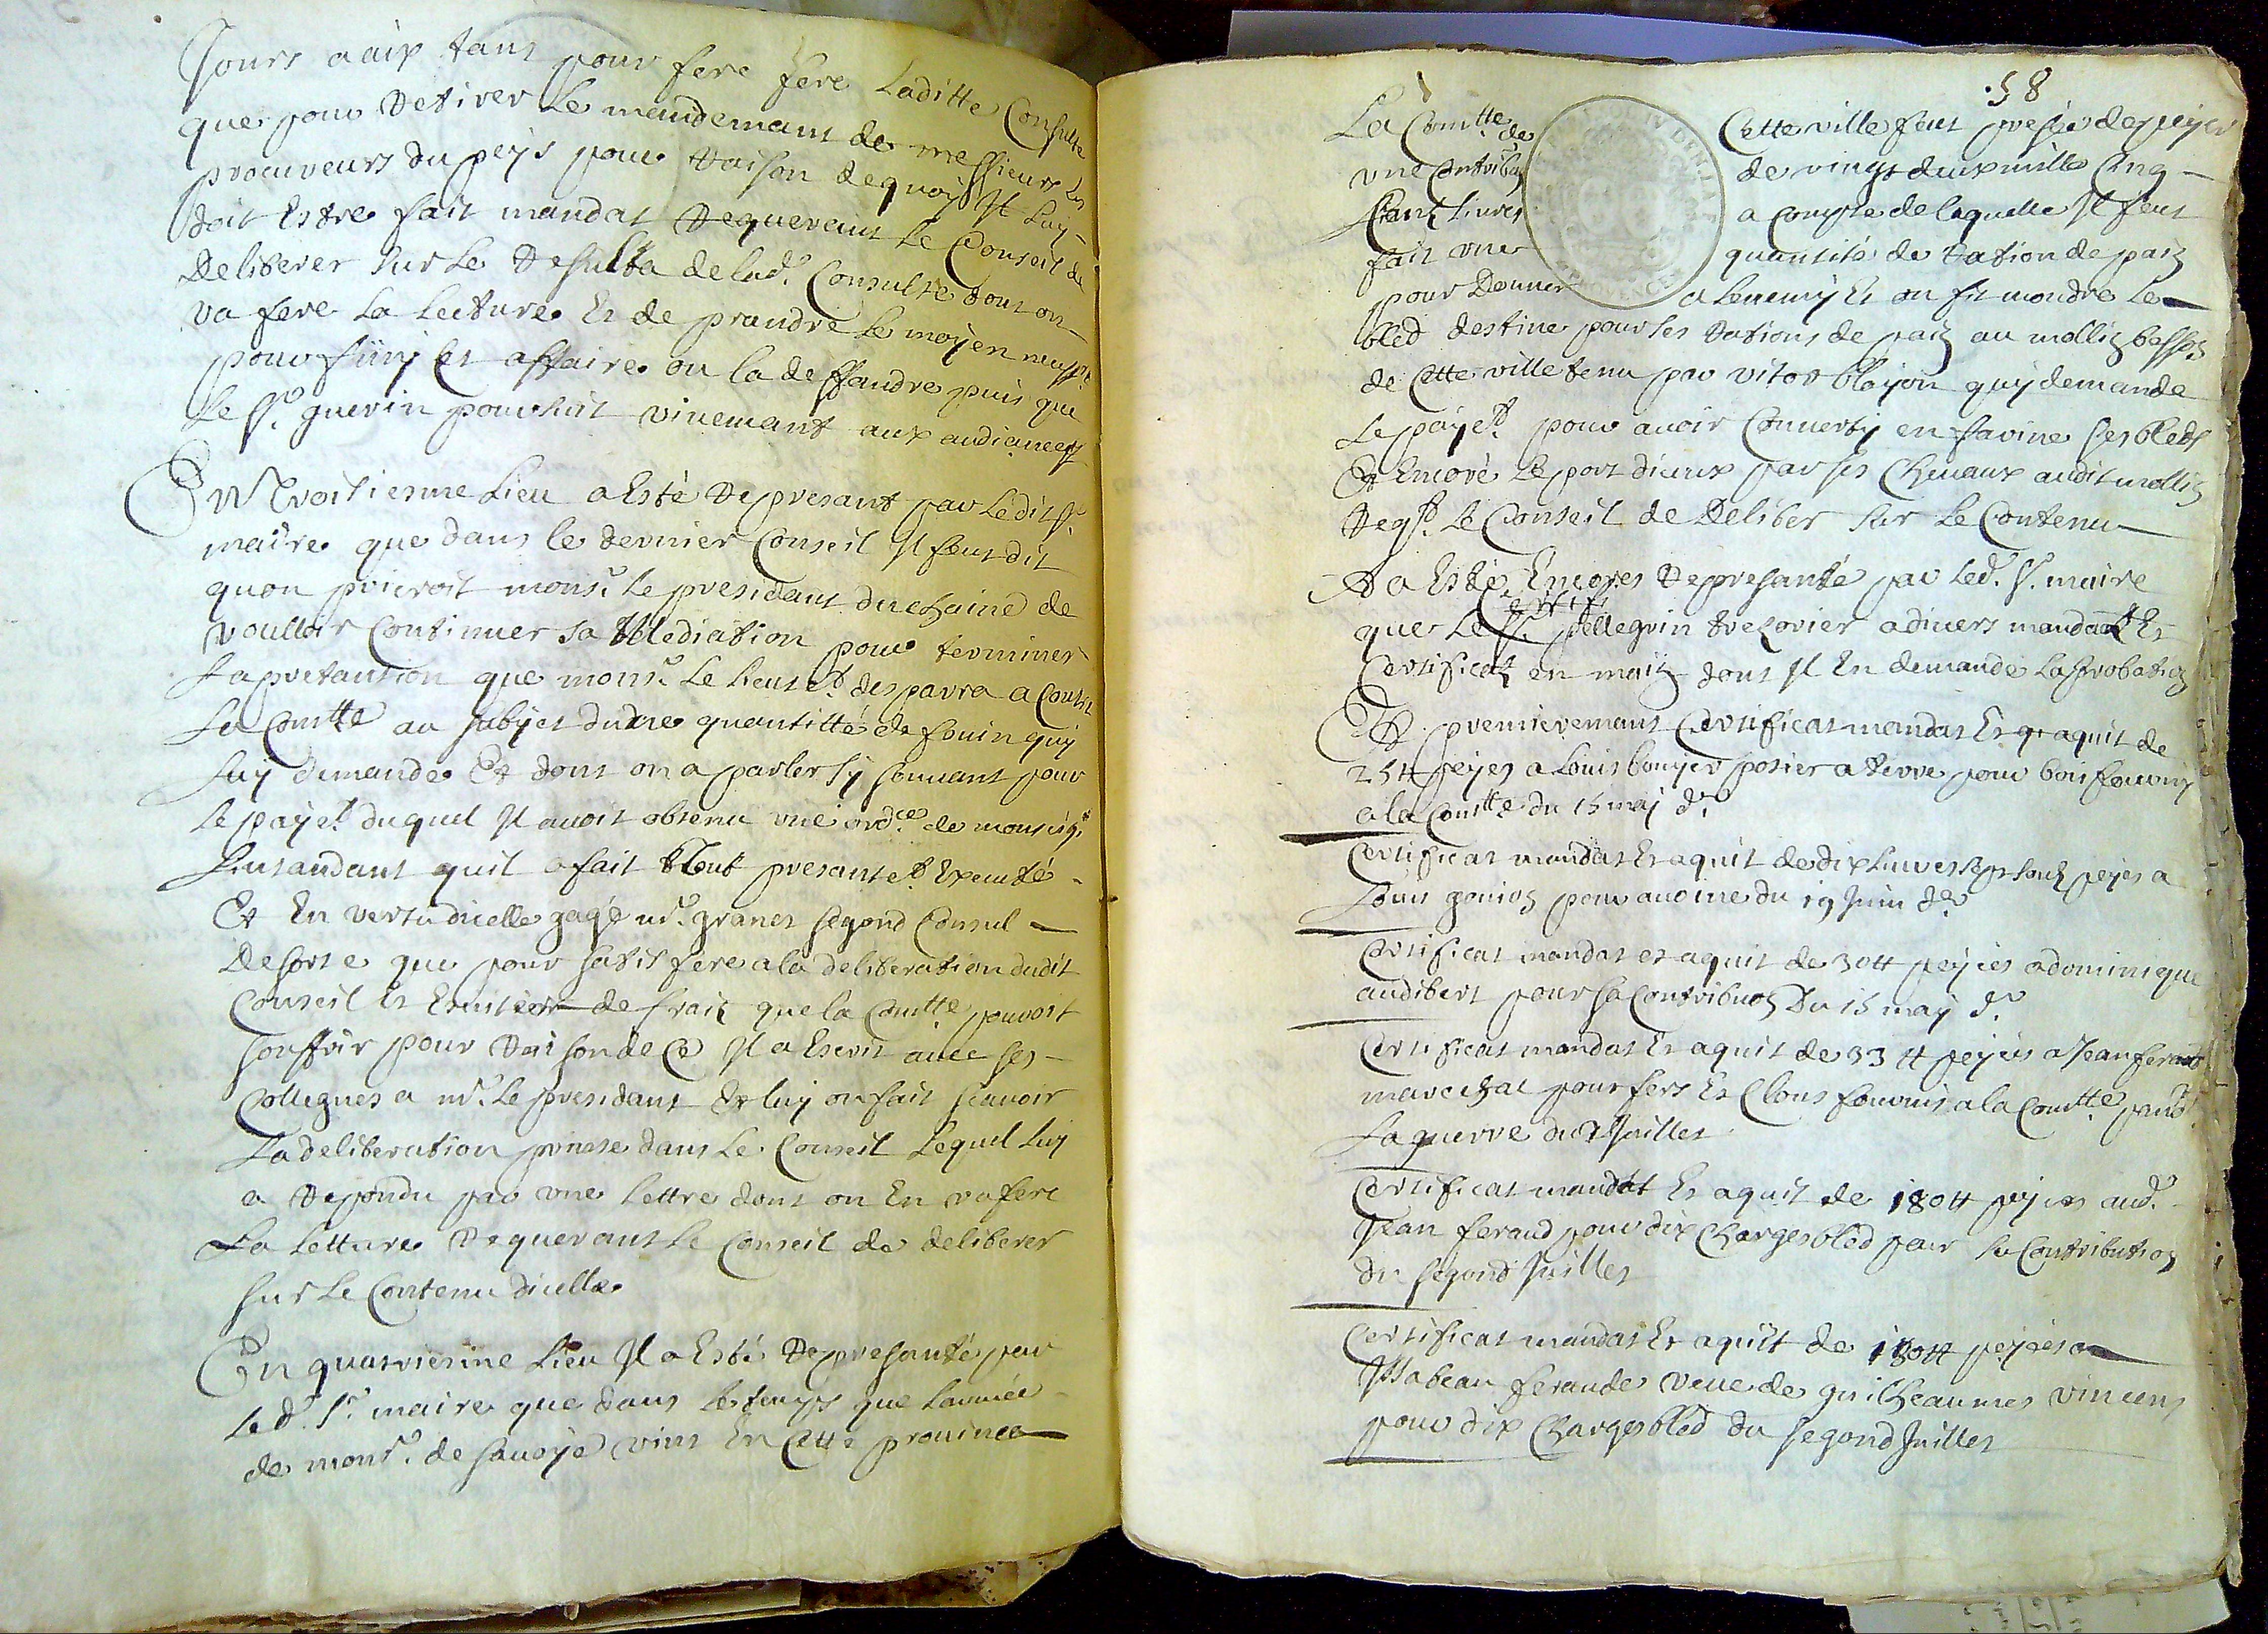 Jours a aix tant pour fere fere Laditte Consulte
que pour Retirer Le mandemant de messieurs les
procureurs du peijs pour Raison de quoij Il Luij
doit Estre fait mandat Requerant le Conseil de
Deliberer sur le Resulta de lad.e Consulte dont on
va fere la lecture Et de prandre le moijen
pour finij cet affaire ou la deffandre puis que
le Sr. guerin poursuit vivemant aux audiances
En Troisiesme Lieu a Esté Represanté par Ledit Sr.
maire que dans le dernier Conseil Il feut dit
quon prieroit monsr. le presidant duchaine de
voulloir Continuer sa Mediation pour terminer
La pretantion que monsr. Le lieutet. desparra a Contre
La Comtté au subjet dune quantitté de fouin quij
luij demande Et dont on a parler sij souvant pour
Le paijet. duquel Il avoit obtenu une ordce. de monseigr.
Lintandant quil a fait Tout presantet. Executé
Et En vertu dicelle gagé mr. granet segond Consul
De sorte que pour satisfere a la deliberation dudit
Conseil Et Eviter de fraiz que la Comtté pouvoit
souffrir pour Raison de Ce Il a Escrit avec ses
Collegues a mr. le presidant Et luij on fait scavoir
La deliberation prinse dans le Conseil Lequel luij
a Repondu par une lettre dont on En va fere
La Letture Requerant le Conseil de deliberer
sur le Contenu dicelle
En quatriesme Lieu Il a Esté Represanté par
led. Sr. maire que dans le temps que Larmée
de monsr. de savoije vint En Cette province
58
La Comtté de Cette ville feut pressée de peijer
une Contribuon de vingt deux mille Cinq
Cens livres a Compte de laquelle Il feut
fait une quantité de Ration de pain
pour Donner a Lenemij Et on fit moudre le
bled destiné pour les Rations de pain au mollin bassez
de Cette ville tenu par vitor blaijon quij demande
Le paijet. pour avoir Convertij en farine ses bleds
Et Encore le port diceux par ses Chevaux audit mollin
Reqt. le Conseil de Deliber sur le Contenu
A Esté Encores Represanté par led. Sr. maire
que Le Sr. pellegrin tresorier a divers mandats Et
Certificatz en main dont Il En demande Laprobation
Et premieremant Certificat mandat Et aquit de
25tt peijes a Louis bouijer potier a terre pour bois fournij
a la Comtté du 15 maij dr.
Certificat mandat Et aquit de dix livres sept soulz peijes a
Louis pour avoine du 19 Juin der
Certificat mandat et aquit de 30tt peijées a dominique
audibert pour sa Contribuon Du 15 maij dr.
Certificat mandat Et aquit de 33tt peijées a Jean feraud
marechal pour fers Et Clous fournis a la Comtté pandt.
La guerre du 2 Juillet
Certificat mandat Et aquit de 180tt peijées aud.
Jean feraud pour dix Charges bled pour la Contribution
du segond Juillet
Certificat mandat Et aquit de 180tt peijées a
Issabeau feraude veuve de guilheaumes vincens
pour dix Charges bled du segond Juillet